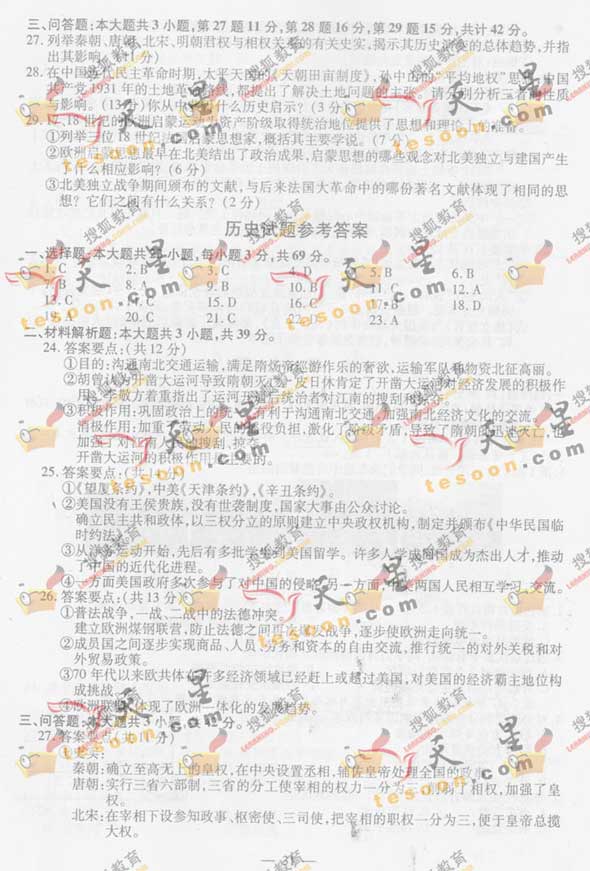 三、问答题:本大题共3小题,第27题11分,第28题16分,第29题15分,共计42分。
27. 列举秦朝、唐朝、北宋、明朝君权与相权关系的有关史实,揭示其历史演变的总体趋势,并指
出其影响。(11分)
28. 在中国近代民主革命时期,太平天国的《天朝田亩制度》、孙中山的“平均地权”思
产党1931年的土地革命 都提出了解决土地问题的主张。请 分别分析 性质
与影响。(13分)你从中 什么历史启示?(3分)
洲启蒙运动为资产阶级取得统治地位提供了思想和理论上的准备。
①列举三位18世纪法国启蒙思想家,概括其主要学说。(7分)
②欧洲启蒙思想最早在北美结出了政治成果,启蒙思想的哪些观念对北美独立与建国产生
了什么相应影响?(6分)
③北美独立战争期间颁布的文献,与后来法国大革命中的哪份著名文献体现了相同的思
想?它们之间有什么关系?(2分)
历史试题参考答案
一、选择题:本大题共23小题,每小题3分,共69分。
1. C 2. B 3. C 4. D 5. B 6. B
7. B 8. A 9. B 10. B 11. C 12. A
13. C 14. 15. D 16. C 17. B 18. D
19. A 20. C 21. C 22. D 23. A
二、材料解析题:本大题共3小题,共39分。
24. 答案要点:(共12分)
①目的:沟通南北交通运输,满足隋炀帝巡游作乐的奢欲,运输军队和物资北征高丽。
②胡曾认为开凿大运河导致隋朝灭亡,皮日休肯定了开凿大运河对经济发展的积极作
用,李敬方着重指出了运河开通后统治者对江南的搜刮和掠夺。
③积极作用:巩固政治上的统一,有利于沟通南北交通,加强南北经济文化的交流。
消极作用:加重了劳动人民的徭役负担,激化了阶级矛盾,导致了隋朝的迅速灭亡,也
加强 搜刮、掠夺。
开凿大运河的积极作用是主要的。
25. 答案要点:(共14分)
①《望厦条约》,中美《天津条约》,《辛丑条约》。
②美国没有王侯贵族,没有世袭制度,国家大事由公众讨论。
确立民主共和政体,以三权分立的原则建立中央政权机构,制定并颁布《中华民国临
时约法》。
③从洋务运动开始,先后有多批学生到美国留学。许多人学成回国成为杰出人才,推动
了中国的近代化进程。
④一方面美国政府多次参与了对中国的侵略,另一方面,中美两国人民相互学习、交流。
26. 答案要点:(共13分)
①普法战争,一战、二战中的法德冲突。
建立欧洲煤钢联营,防止法德之间再次爆发战争,逐步使欧洲走向统一。
②成员国之间逐步实现商品、人员、劳务和资本的自由交流,推行统一的对外关税和对
外贸易政策。
③70年代以来欧共体在许多经济领域已经赶上或超过美国,对美国的经济霸主地位构
成挑战。
④欧洲联盟体现了欧洲一体化的发展趋势。
三、问答题:本大题共3小题,共42分。
27. 答案要点:(共11分)
史实:
秦朝:确立至高无上的皇权,在中央设置丞相,辅佐皇帝处理全国的政事。
唐朝:实行三省六部制,三省的分工使宰相的权力一分为三,削弱了相权,加强了皇
权。
北宋:在宰相下设参知政事、枢密使、三司使,把宰相的职权一分为三,便于皇帝总揽
大权。
搜狐教育
LEARNING.sohu.com
天星
tesoon.com